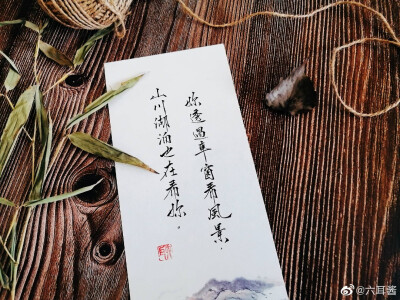 妳透過車窗看風景.
山川湖泊也在看妳。
@六耳酱